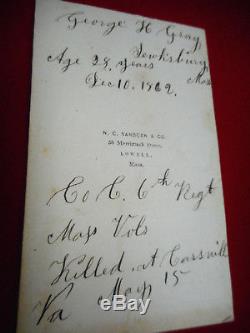 George H Gray
Tewksbury
Age 28 years Mass
Dec 10. 1862.
N. C. SANBORN & CO.
Merrimack Street,
LOWELL,
Mass.
Co C. 6th Regt
Mass Vols
Killed at Carsville
Va May 15